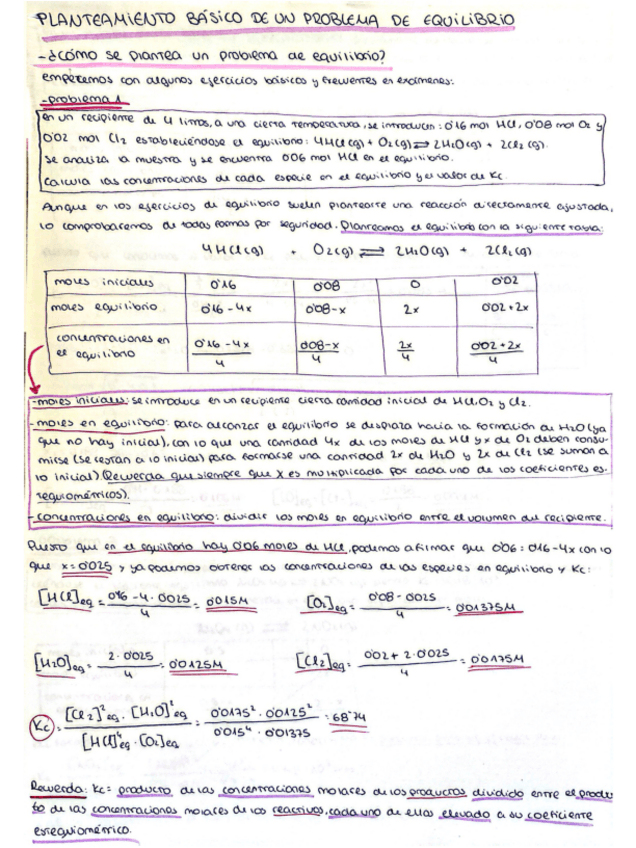 PLANTEAMIENTO BÁSICO DE UN PROBLEMA DE EQUILIBRIO
-¿cómo se plantea un problema de equilibrio?
empecemos con algunos ejercicios básicos y frecuentes en exámenes:
-problema 1
en un recipiente de 4 litros, a una cierta temperatura, se introducen: 0'16 mol HCl, 0'08 mol O₂ y
0'02 mol Cl₂ estableciéndose el equilibrio: 4HCl(g) + O₂(g) ⇌ 2H₂O(g) + 2Cl₂(g).
se analiza la muestra y se encuentra 0'06 mol HCl en el equilibrio.
Calcula las concentraciones de cada especie en el equilibrio y el valor de Kc.
Aunque en los ejercicios de equilibrio suelen plantearte una reacción directamente ajustada,
lo comprobaremos de todas formas por seguridad. Planteamos el equilibrio con la siguiente tabla:
4HCl(g) + O₂(g) ⇌ 2H₂O(g) + 2Cl₂(g)
moles iniciales 0'16 0'08 0 0'02
moles equilibrio 0'16-4x 0'08-x 2x 0'02+2x
concentraciones en el equilibrio (0'16-4x)/4 (0'08-x)/4 2x/4 (0'02+2x)/4
-moles iniciales: se introduce en un recipiente cierta cantidad inicial de HCl, O₂ y Cl₂.
-moles en equilibrio: para alcanzar el equilibrio se desplaza hacia la formación de H₂O (ya
que no hay inicial), con lo que una cantidad 4x de los moles de HCl y x de O₂ deben consu-
mirse (se restan a lo inicial) para formarse una cantidad 2x de H₂O y 2x de Cl₂ (se suman a
lo inicial). (Recuerda que siempre que x es multiplicada por cada uno de los coeficientes es-
tequiométricos).
-concentraciones en equilibrio: dividir los moles en equilibrio entre el volumen del recipiente.
Puesto que en el equilibrio hay 0'06 moles de HCl, podemos afirmar que 0'06 = 0'16-4x con lo
que x = 0'025 y ya podemos obtener las concentraciones de las especies en equilibrio y Kc:
[HCl]eq = (0'16 - 4·0'025)/4 = 0'015M [O₂]eq = (0'08 - 0'025)/4 = 0'01375M
[H₂O]eq = (2·0'025)/4 = 0'0125M [Cl₂]eq = (0'02 + 2·0'025)/4 = 0'0175M
Kc = ([Cl₂]²eq · [H₂O]²eq)/([HCl]⁴eq · [O₂]eq) = (0'0175² · 0'0125²)/(0'015⁴ · 0'01375) = 68'74
Recuerda: Kc = producto de las concentraciones molares de los productos dividido entre el produc-
to de las concentraciones molares de los reactivos, cada uno de ellos elevado a su coeficiente
estequiométrico.